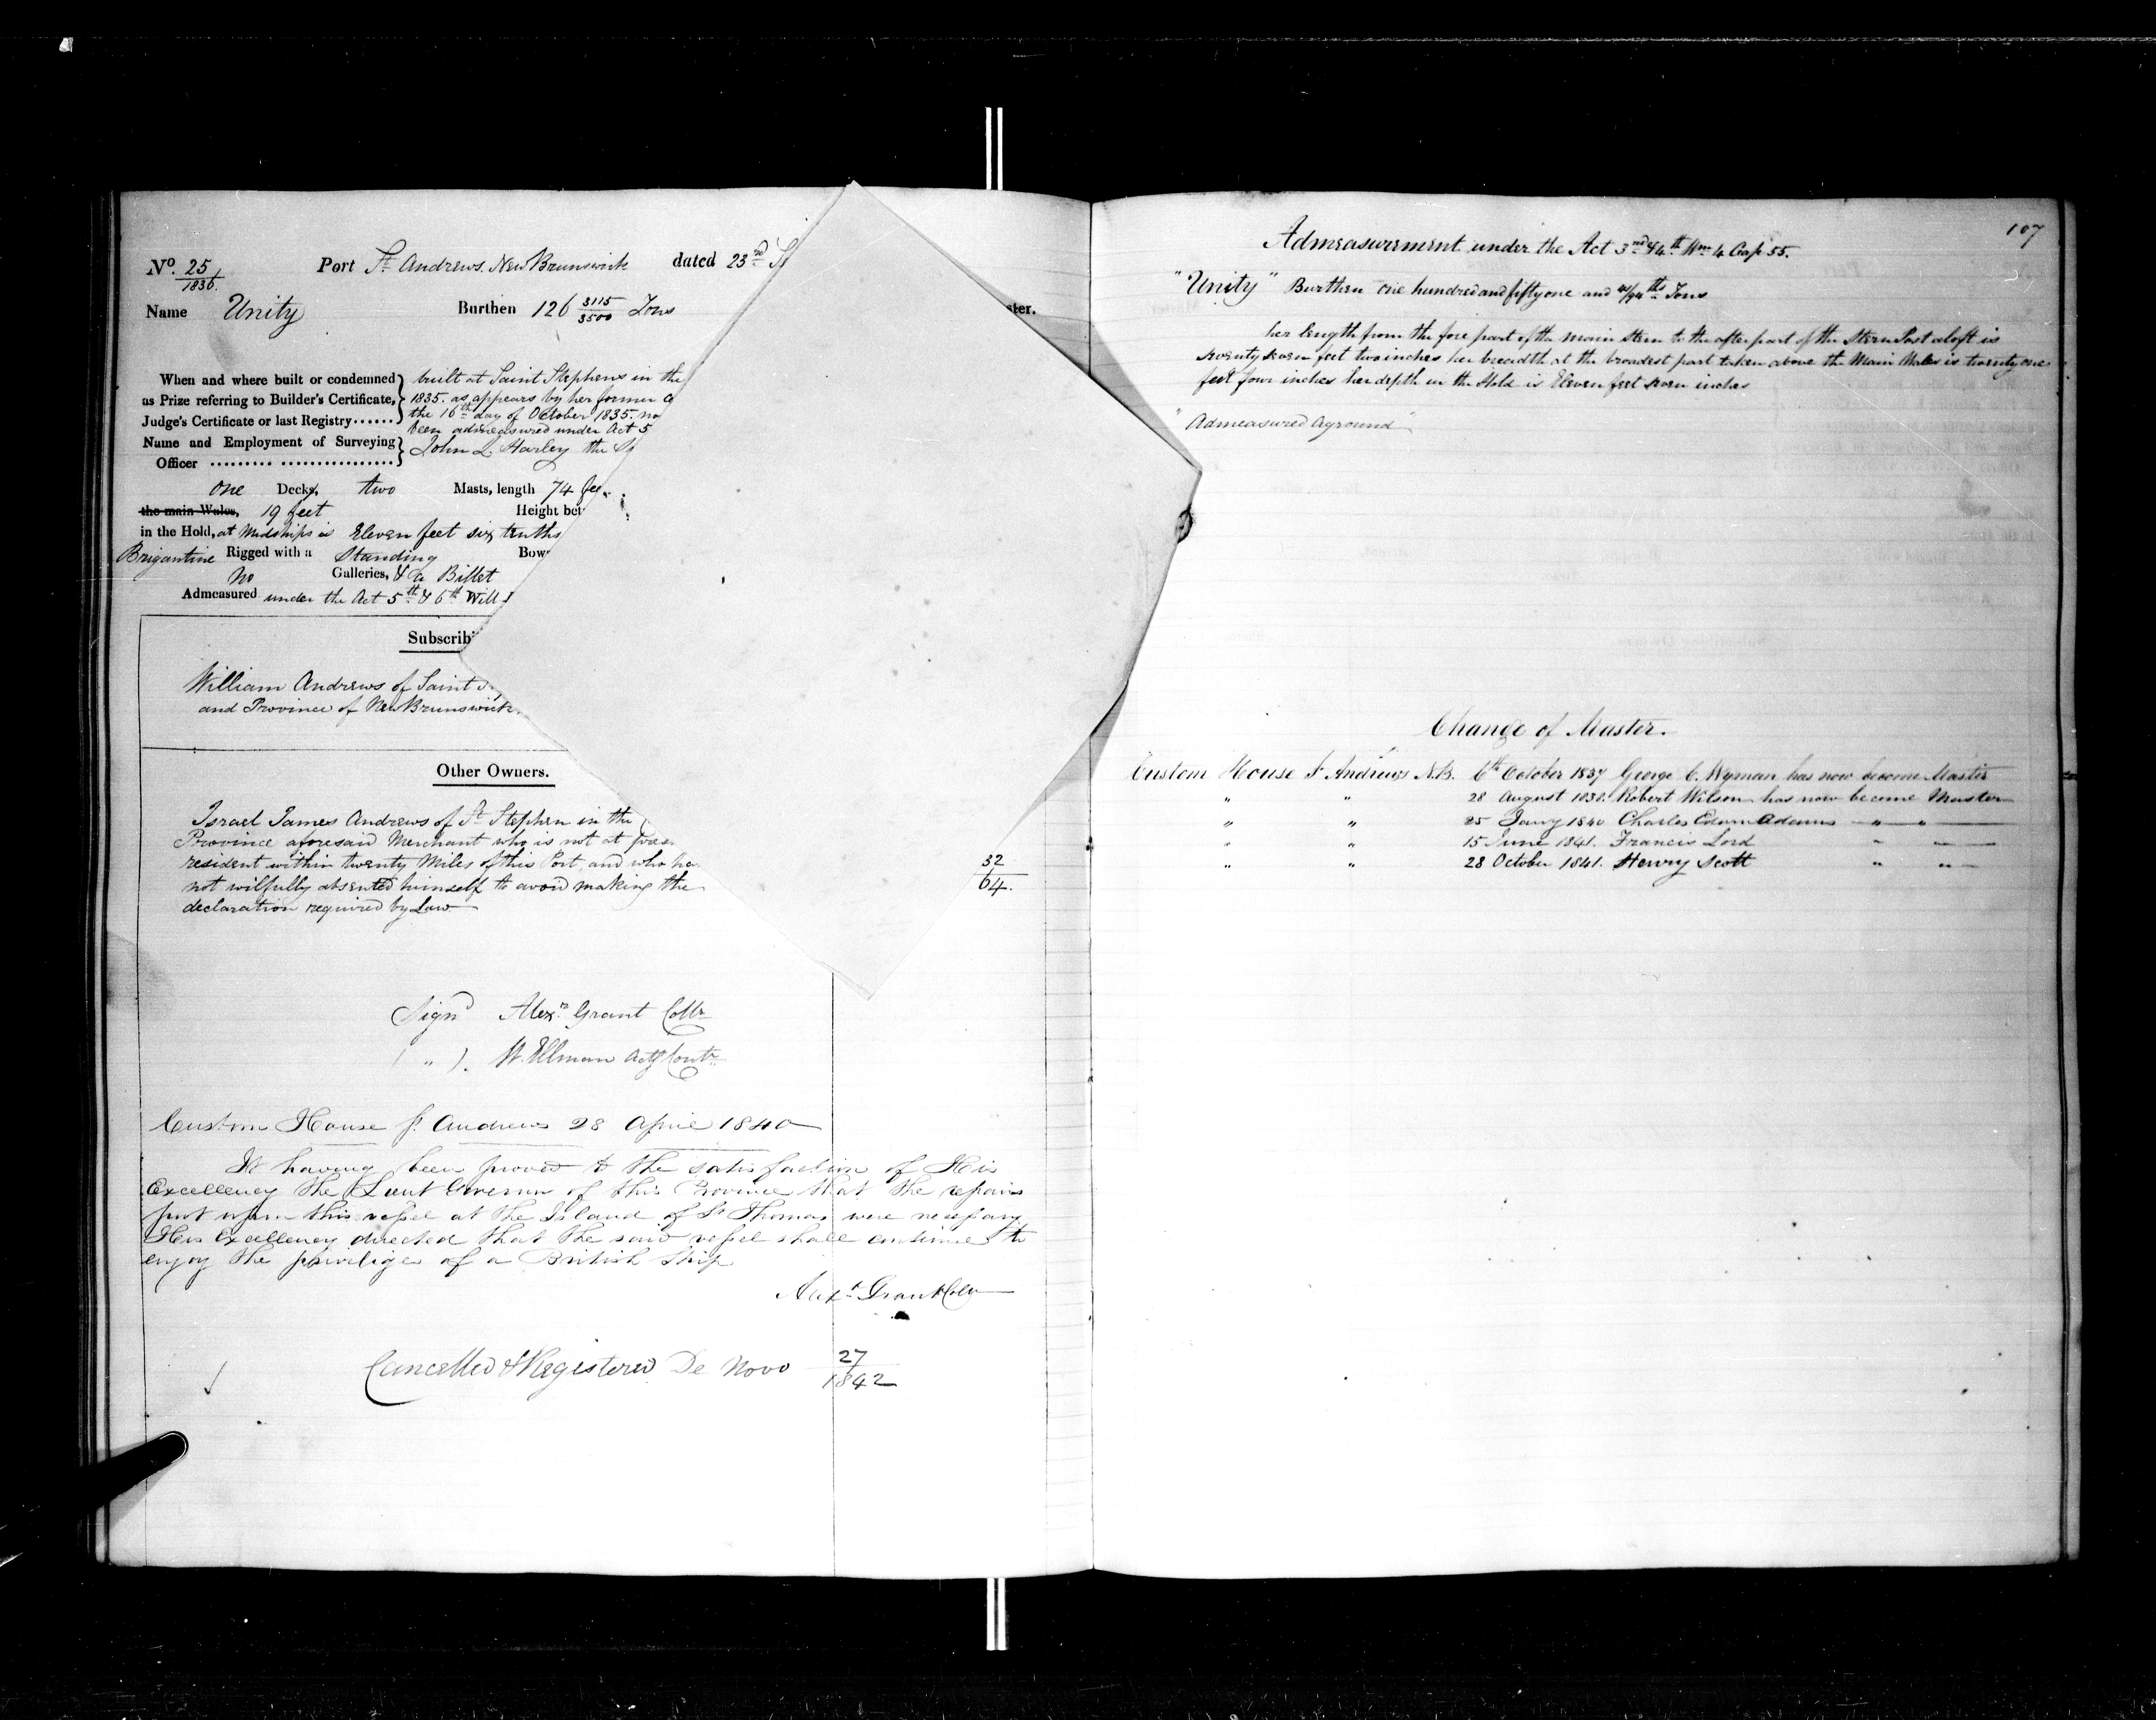 No. 25/1836. Port St. Andrews. New Brunswick dated 23rd
Name Unity Burthen 126 3115/3500 Tons
ster.
When and where built or condemned built at Saint Stephens in the
as Prize referring to Builder's Certificate, 1835. as appears by her former
Judge's Certificate or last Registry...... the 16th day of October 1835. no
been admeasured under Act 5
Name and Employment of Surveying John L. Harley the
Officer
one Decks, two Masts, length 74 fee
the main Wales, 19 feet Height bet
in the Hold, at Midships is Eleven feet six tenths
Brigantine Rigged with a Standing Bow
no Galleries, & a Billet
Admeasured under the Act 5th & 6th Will
Subscrib
William Andrews of Saint
and Province of New Brunswick
Other Owners.
Israel James Andrews of St. Stephen in the
Province aforesaid Merchant who is not at prese
resident within twenty Miles of this Port, and who ha 32/64.
not wilfully absented himself to avoid making the
declaration required by Law
Signd Alexr. Grant Collr
( " ). W. Ellman Actg Contr
Custom House St. Andrews 28 April 1840
It having been proved to the satisfaction of His
Excellency the Lieut Governor of this Province that the repairs
put upon this vessel at the Island of St Thomas were necessary
His Excellency directed that the said vessel shall continue to
enjoy the privileges of a British Ship
Alexr. Grant Collr
Cancelled & Registered De Novo 27/1842
107
Admeasurement under the Act 3rd & 4th Wm 4 Cap 55.
"Unity" Burthen one hundred and fifty one and /94ths Tons
her length from the fore part of the main stem to the after part of the Stern Post aloft is
seventy seven feet two inches her breadth at the broadest part taken above the Main Wales is twenty one
feet four inches her depth in the Hold is Eleven feet seven inches
"Admeasured Aground"
Change of Master.
Custom House St Andrews N.B. 6th October 1837 George C. Wyman has now become Master
" " 28 August 1838. Robert Wilson has now become Master
" " 25 Jany 1840 Charles Edwn Adams " "
" " 15 June 1841. Francis Lord " "
" " 28 October 1841. Henry Scott " "